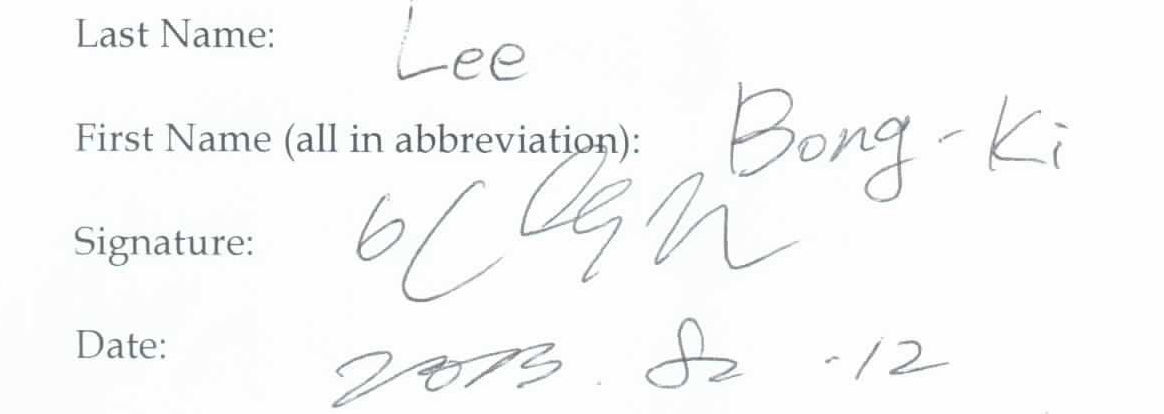 Last Name: Lee
First Name (all in abbreviation): Bong-Ki
Signature:
Date: 2013. -12